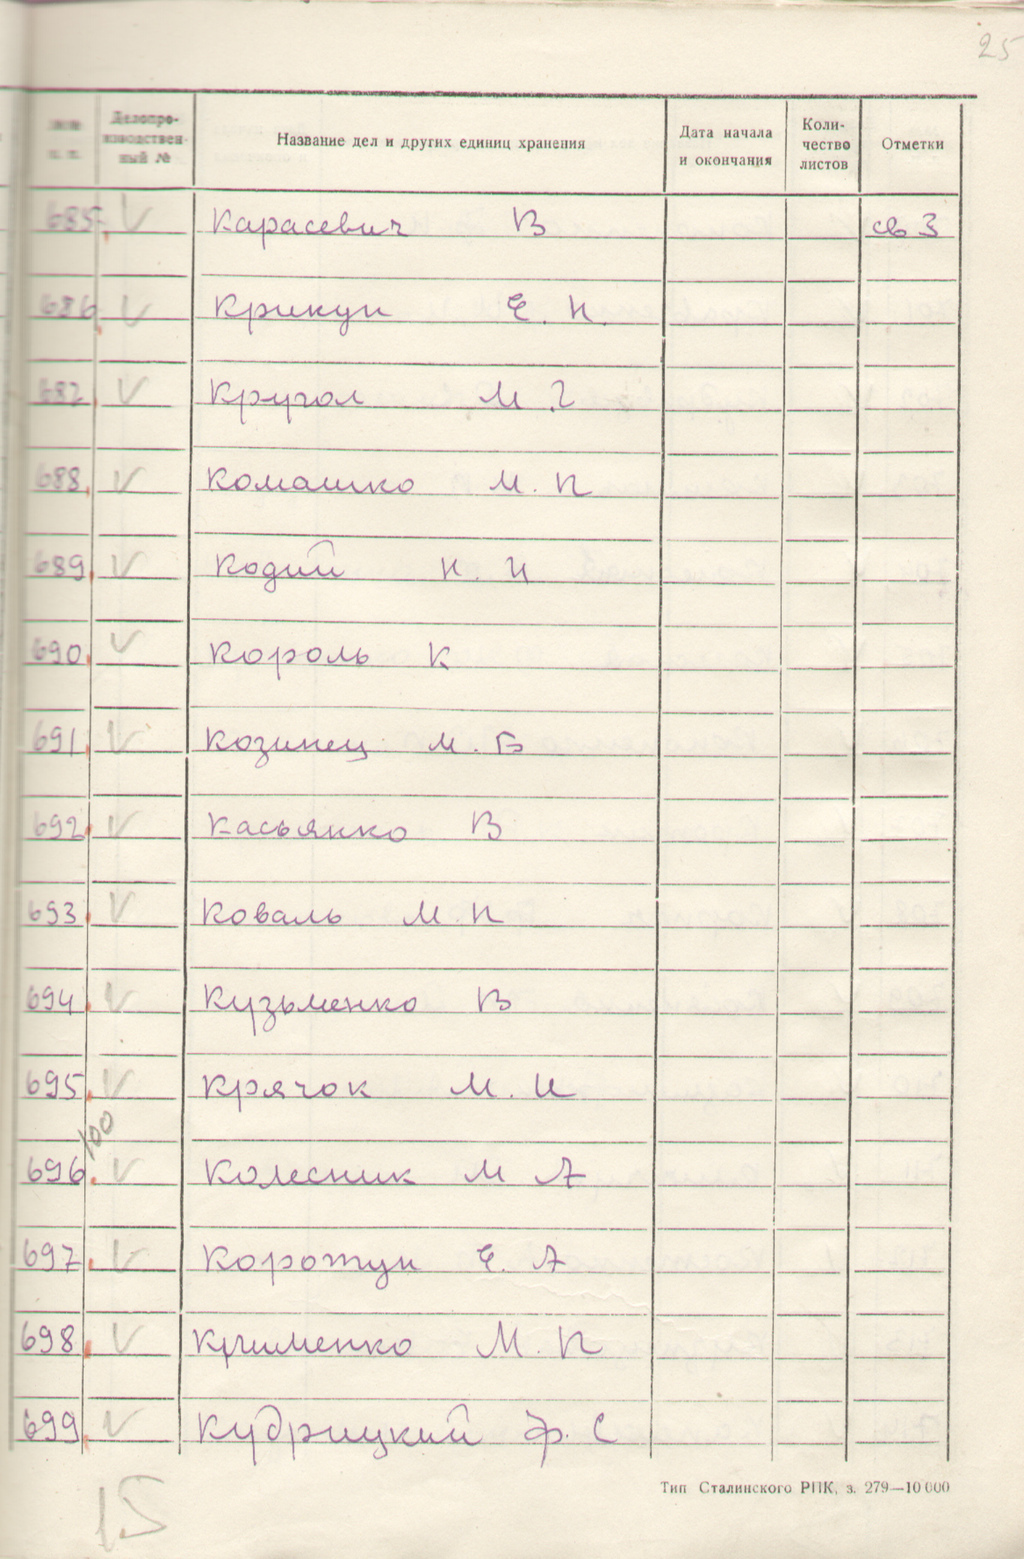 25
п. п.
Делопроизводственный №
Название дел и других единиц хранения
Дата начала и окончания
Количество листов
Отметки
685. V Карасевич В св 3
686. V Крикун Е. Н.
687. V Кругол М. Г
688. V Комашко М. П
689. V Кодий Н. И
690. V Король К
691. V Козинец М. Б
692. V Касьянко В
693. V Коваль М. П
694. V Кузьменко В
695. V Крячок М. И
100
696. V Колесник М А
697. V Коротун Е. А
698. V М. П
699. V Кудрицкий Ф. С
15
Тип Сталинского РПК, з. 279—10 000